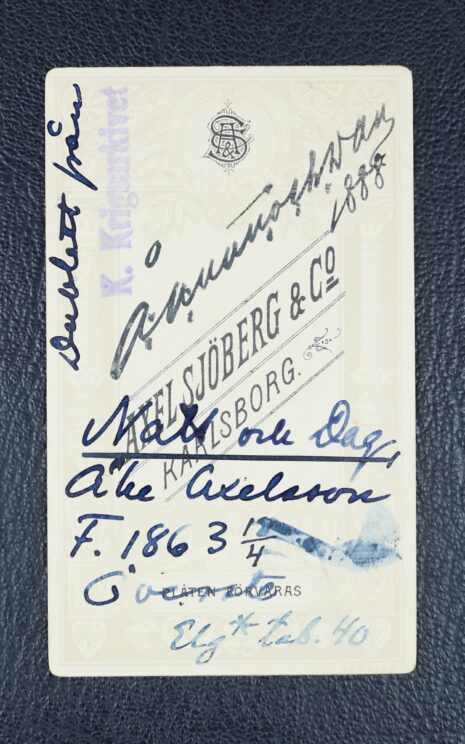 Dublett från
K. Krigsarkivet
1888
AXEL SJÖBERG & Cº
KARLSBORG.
Natt och Dag,
Åke Axelsson
F. 1863 18/4
Överste
PLÅTEN FÖRVARAS
Elg* tab. 40